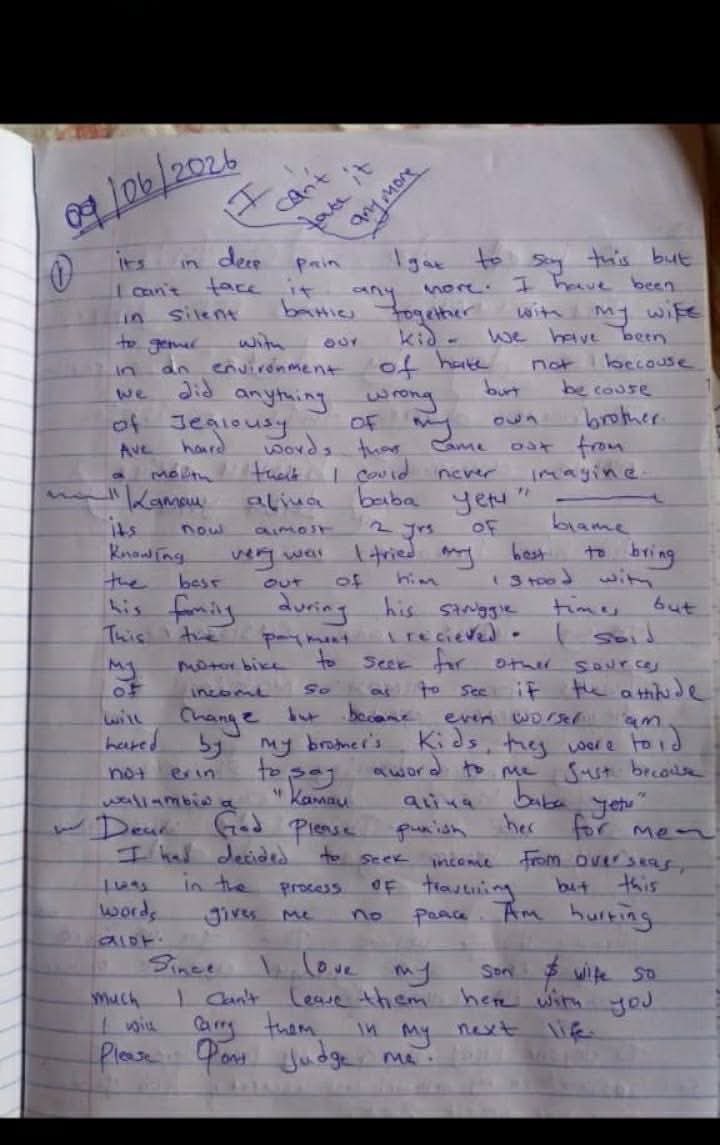 09/06/2026
I can't
take it
anymore
① its in deep pain I gat to say this but
I can't take it any more. I have been
in silent battles together with my wife
together with our kid. We have been
in an environment of hate not because
we did anything wrong but because
of Jealousy of my own brother.
Ave hard words that came out from
a mouth that I could never imagine.
"Kamau aliua baba yetu"
its now almost 2 yrs of blame
Knowing very well I tried my best to bring
the best out of him I stood with
his family during his struggle times but
This the payment I recieved. I sold
My motorbike to seek for other sources
of income so as to see if the attitude
will change but became even worser am
hated by my brother's Kids, they were told
not even to say aword to me just because
waliambiwa "Kamau aliua baba yetu"
Dear God Please punish her for me
I had decided to seek income from overseas,
I was in the process of travelling but this
words gives me no peace. Am hurting
alot.
Since I love my son & wife so
much I can't leave them here with you
I will carry them in my next life.
Please Dont judge me.